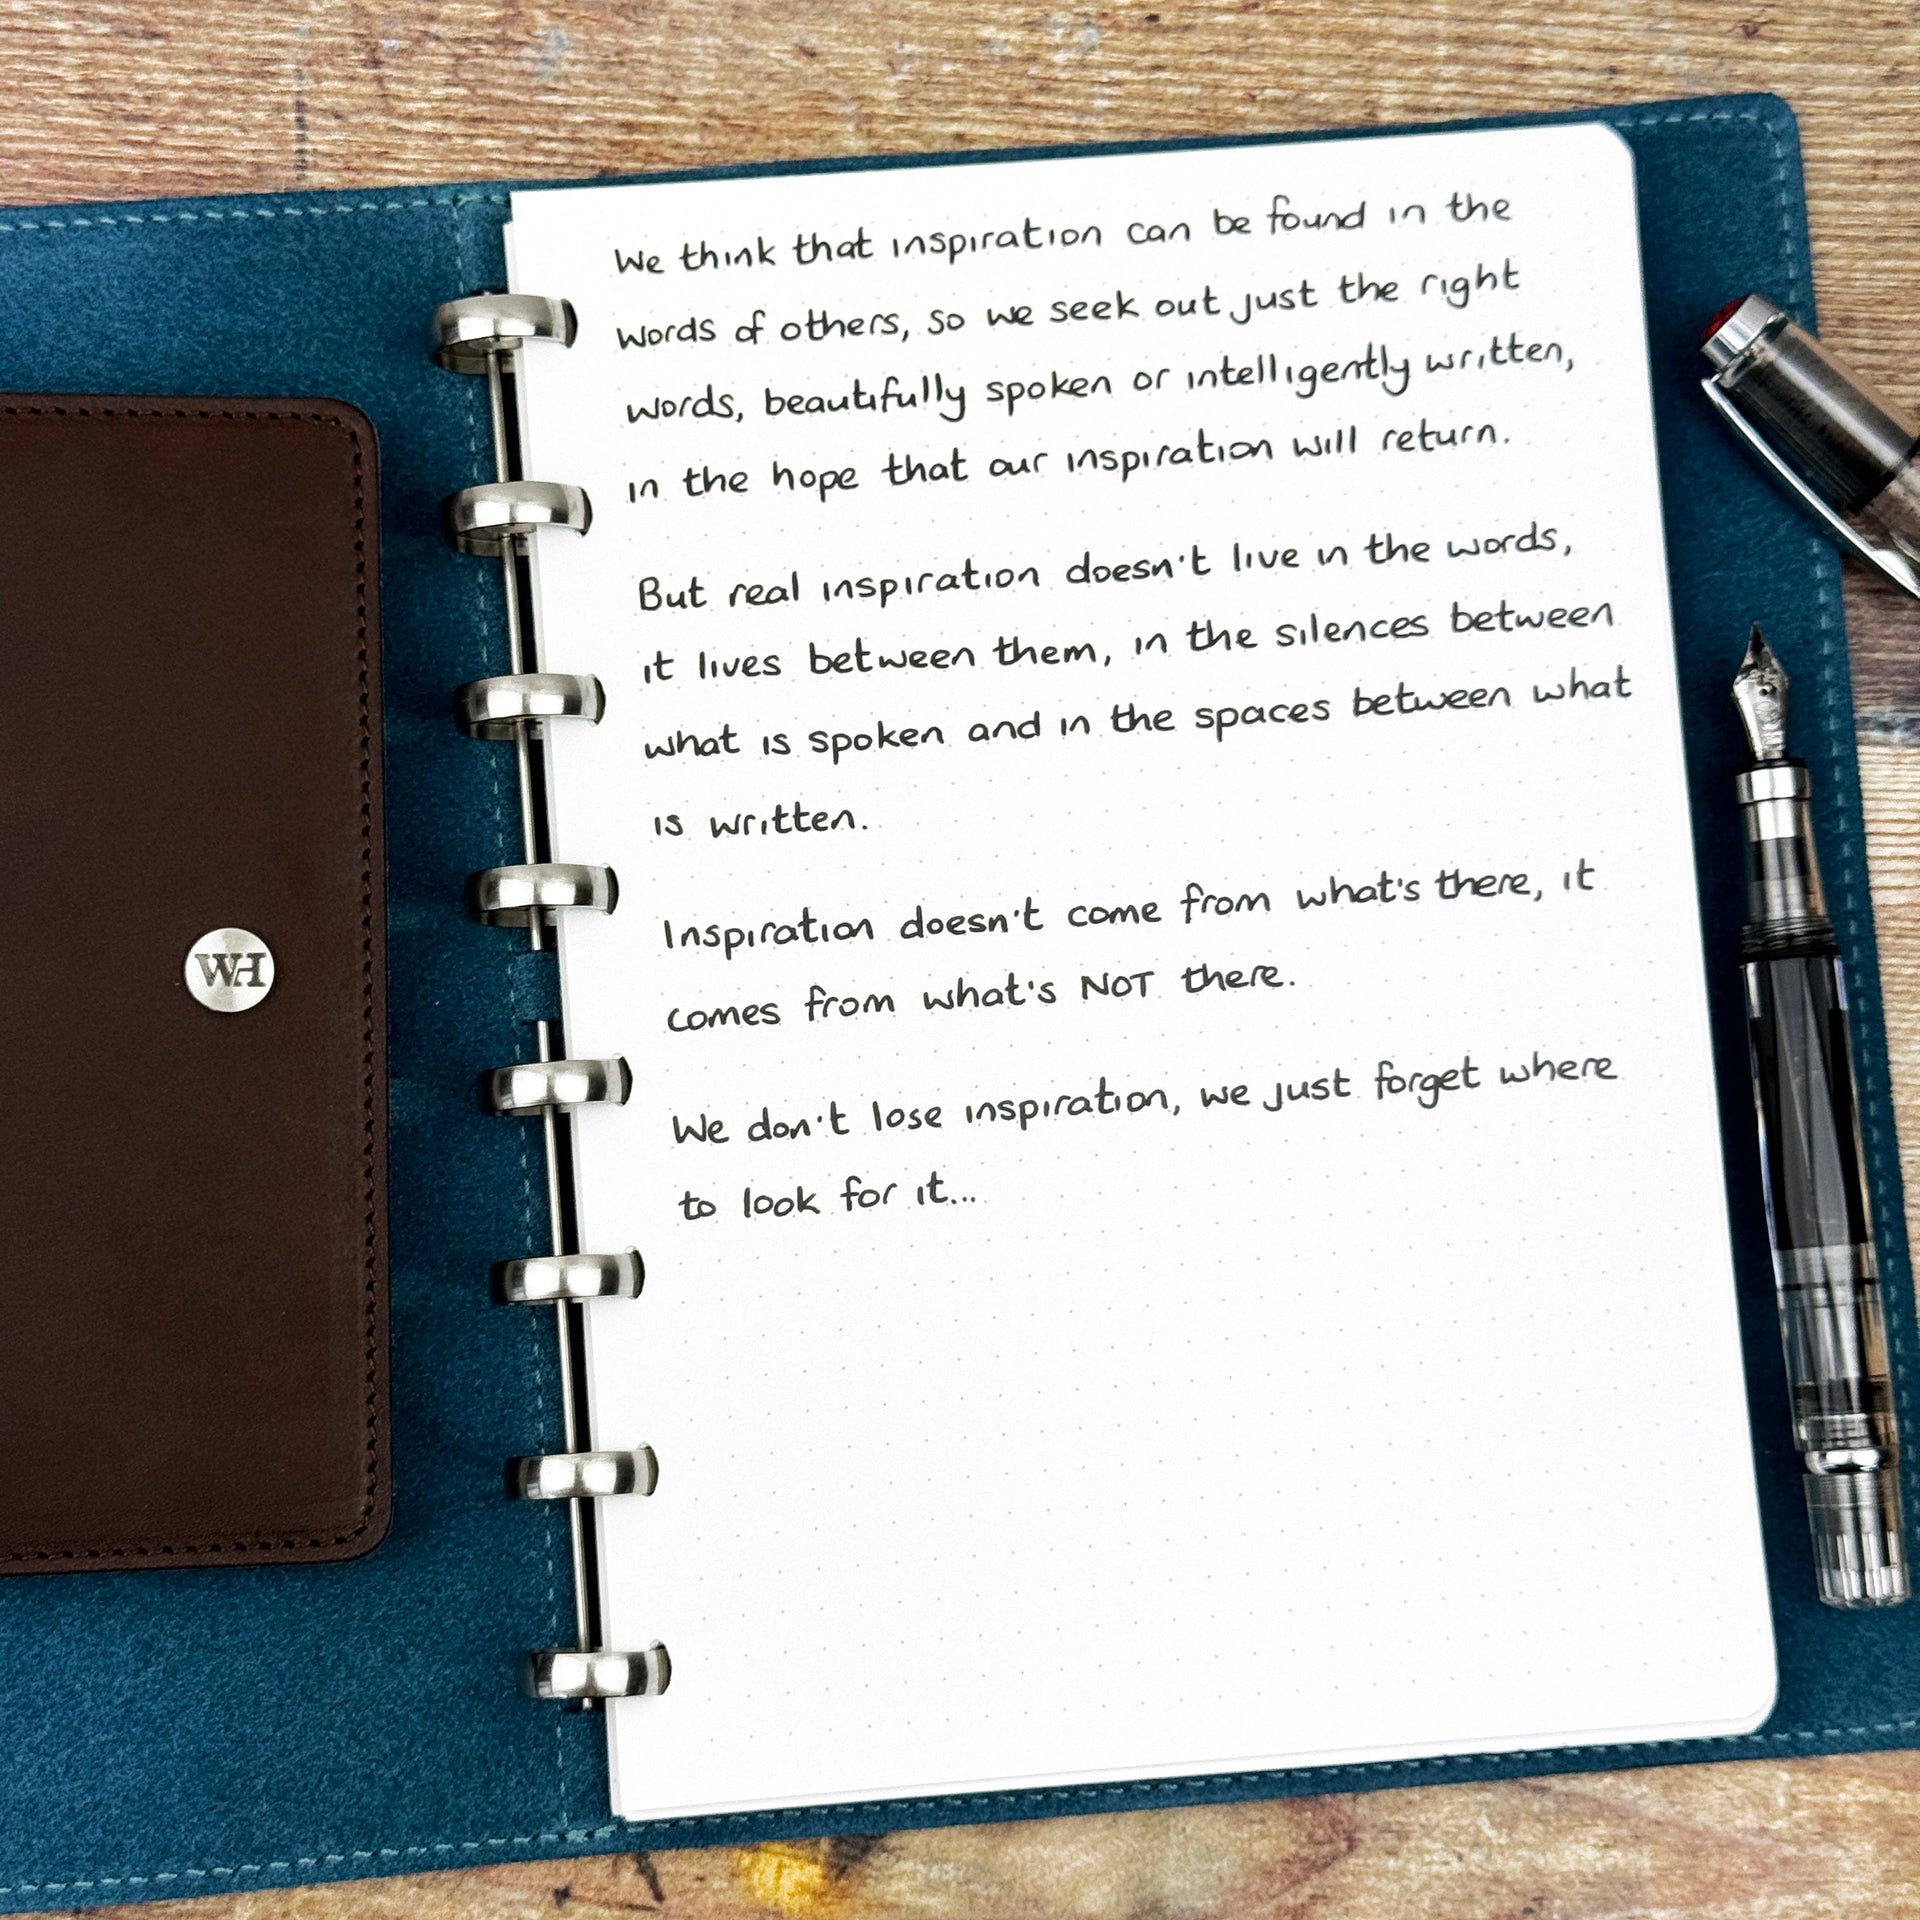 WH
We think that inspiration can be found in the
words of others, so we seek out just the right
words, beautifully spoken or intelligently written,
in the hope that our inspiration will return.
But real inspiration doesn't live in the words,
it lives between them, in the silences between
what is spoken and in the spaces between what
is written.
Inspiration doesn't come from what's there, it
comes from what's NOT there.
We don't lose inspiration, we just forget where
to look for it...